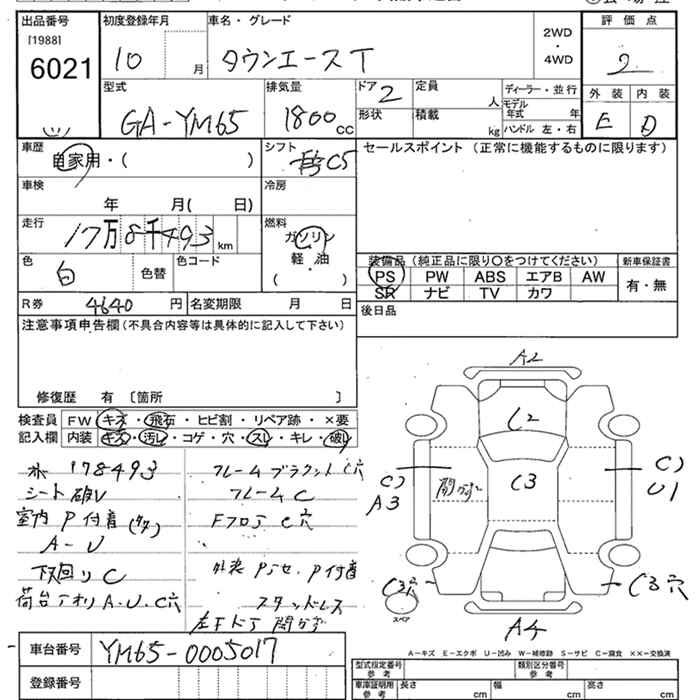 出品番号 初度登録年月 車名・グレード 評価点
[1988] 10 月 タウンエースT 2WD ・ 4WD 2
6021
型式 GA-YM65 排気量 1800 cc ドア 2 定員 人 ディーラー・並行 外装 内装
形状 積載 kg モデル年式 年 E D
ハンドル 左・右
車歴 自家用・( ) シフト C5 セールスポイント (正常に機能するものに限ります)
車検 年 月( 日) 冷房
走行 17万8千493 km 燃料 ガソリン
軽・油
( ・ )
色 白 色替 色コード
装備品 (純正品に限り○をつけてください) 新車保証書
PS PW ABS エアB AW 有・無
SR ナビ TV カワ
R券 4640 円 名変期限 月 日 後日品
注意事項申告欄(不具合内容等は具体的に記入して下さい)
修復歴 有 〔箇所 〕
検査員 FW キズ・飛石・ヒビ割・リペア跡・×要
記入欄 内装 キズ・汚レ・コゲ・穴・スレ・キレ・破レ
178493 フレームブラケットC穴
シート破レ フレームC
室内P付着 FフロアC穴
A-U
下回りC 外装 P付着
荷台アオリA.U.C穴 スタッドレス
左Fドア開かず
A2
C2
C3
開かず
A3
U1
C3穴
C3穴
スペア
A4
A-キズ E-エクボ U-凹み W-補修跡 S-サビ C-腐食 ××-交換済
車台番号 YM65-0005017
登録番号
型式指定番号 参考 類別区分番号 参考
車庫証明用 参考 長さ cm 幅 cm 高さ cm